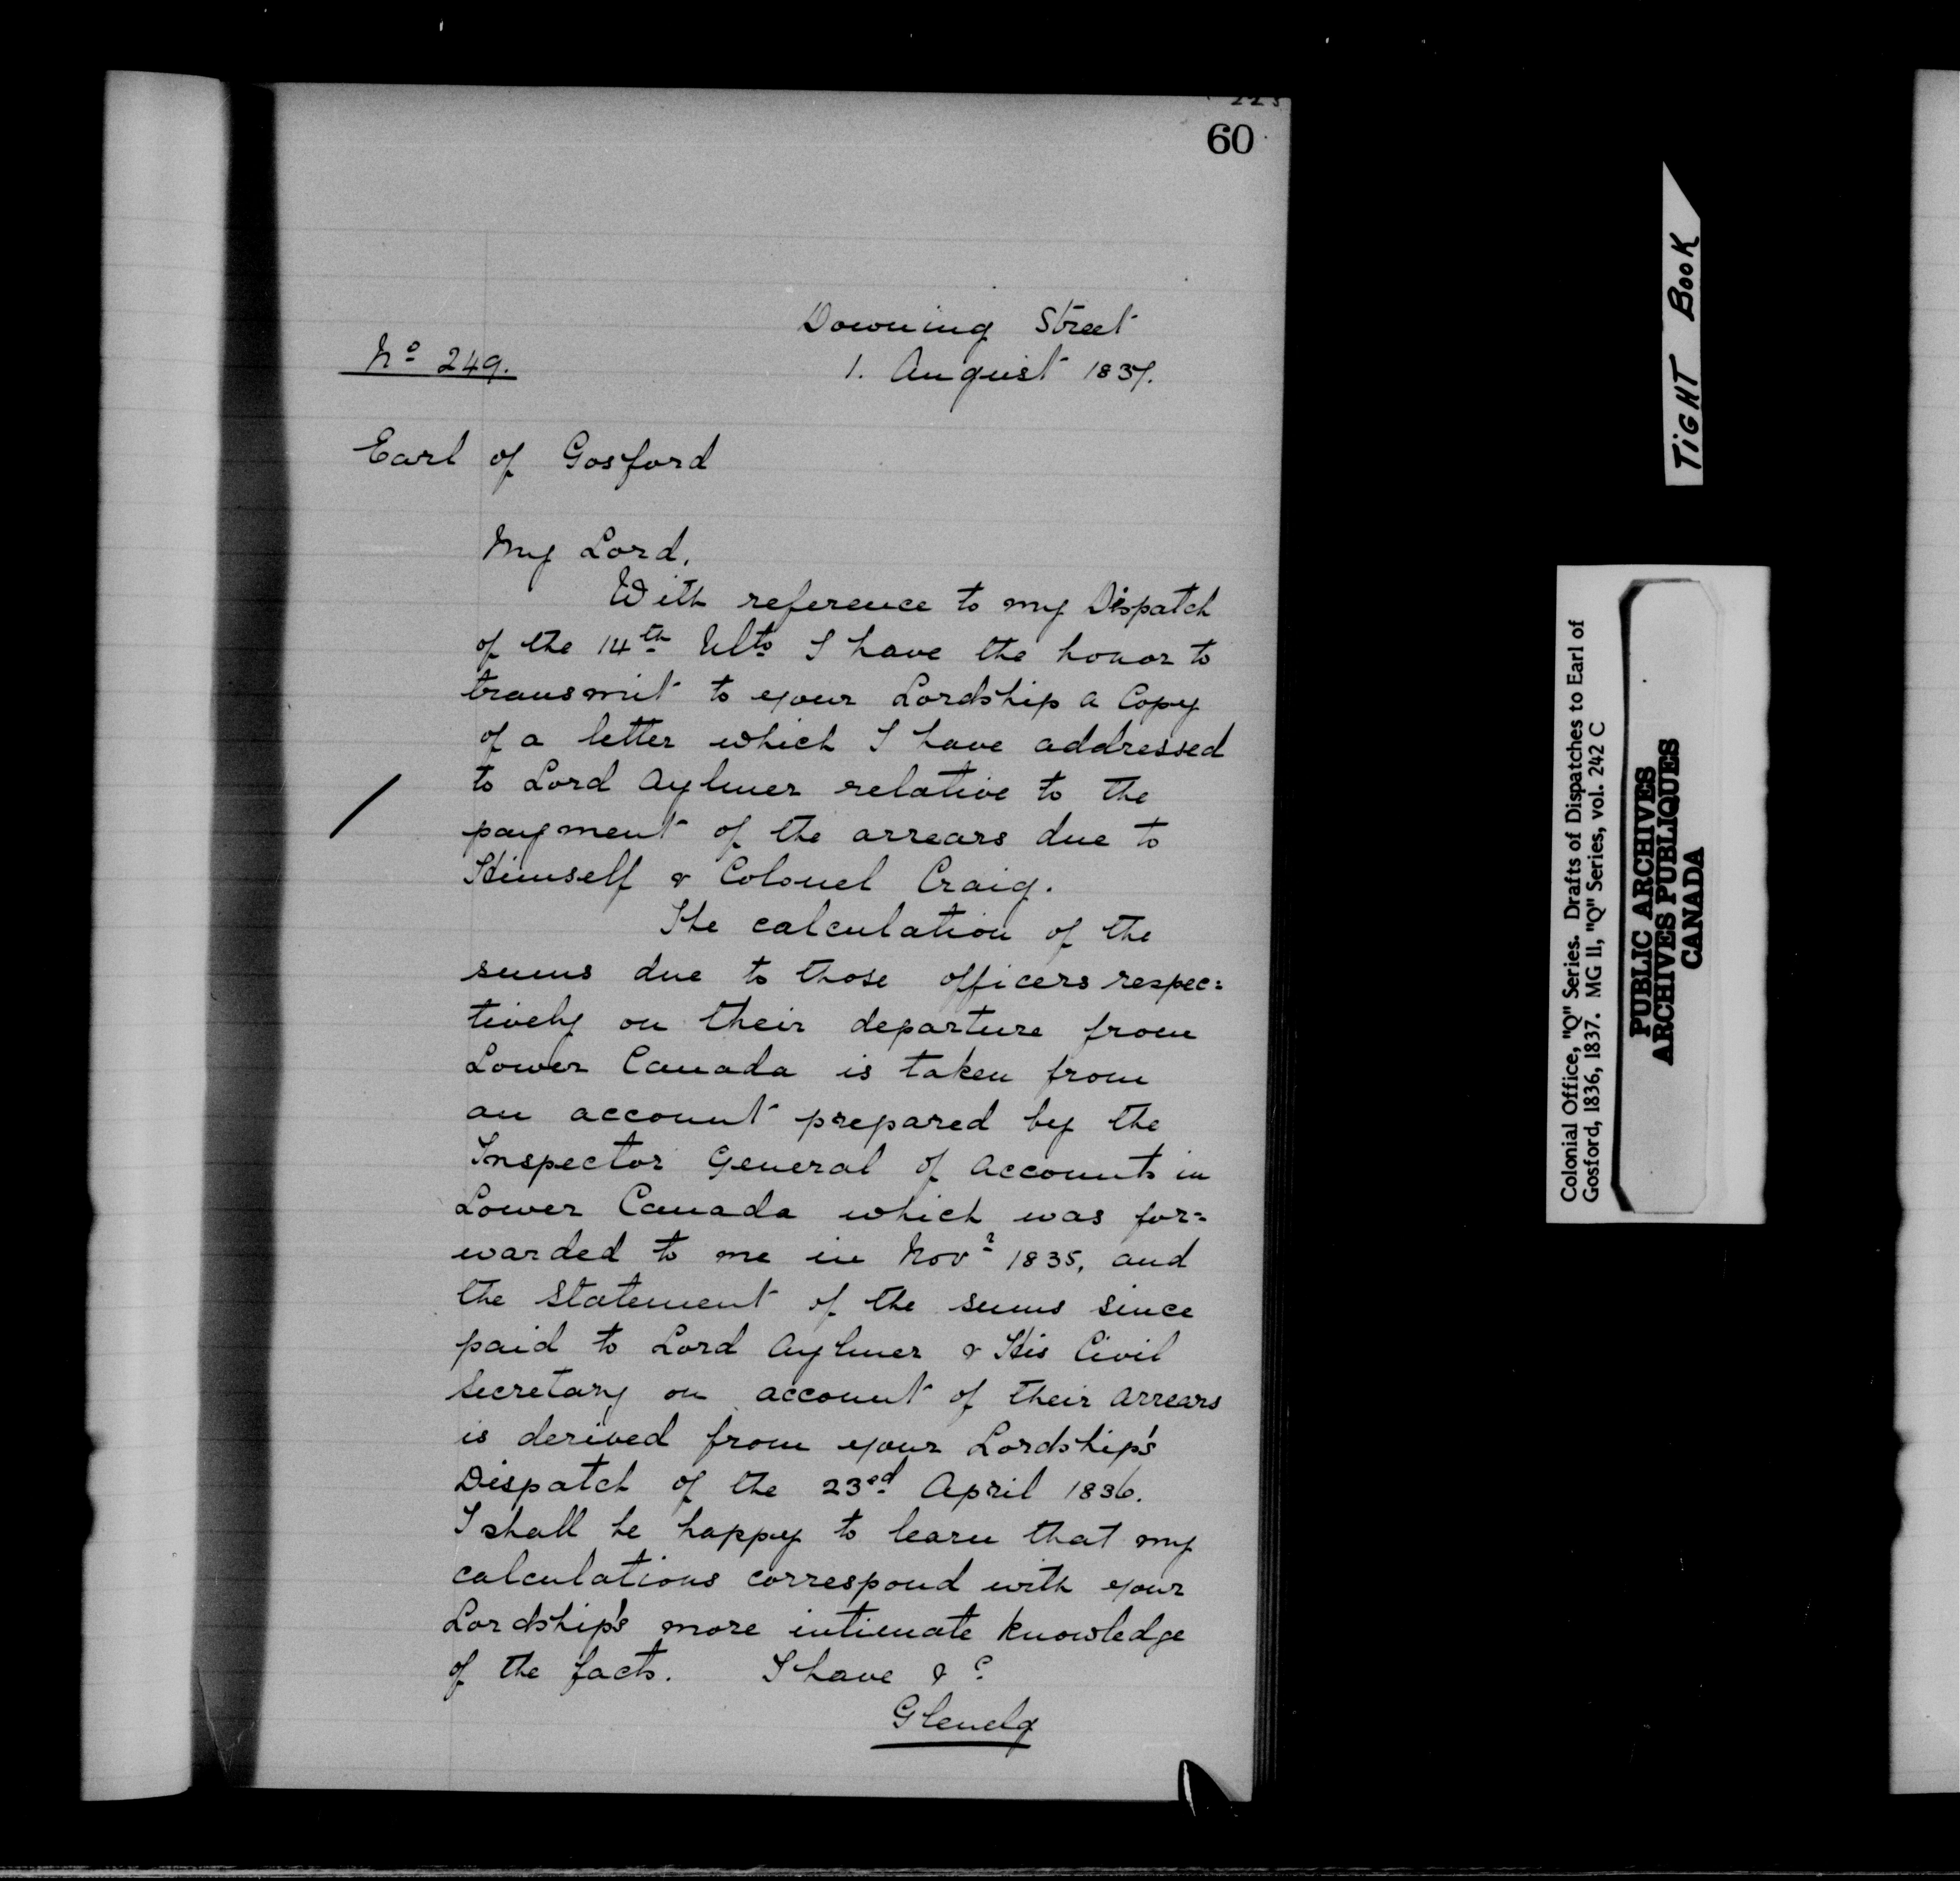 60
Downing Street
Nº 249.
1. August 1837.
Earl of Gosford
My Lord,
With reference to my Dispatch
of the 14th Ulto I have the honor to
transmit to your Lordship a Copy
of a letter which I have addressed
to Lord Aylmer relative to the
payment of the arrears due to
Himself & Colonel Craig.
The calculation of the
sums due to those officers respec=
tively on their departure from
Lower Canada is taken from
an account prepared by the
Inspector General of Accounts in
Lower Canada which was for=
warded to me in Novr 1835, and
the Statement of the sums since
paid to Lord Aylmer & His Civil
Secretary on account of their Arrears
is derived from your Lordship's
Dispatch of the 23rd April 1836.
I shall be happy to learn that my
calculations correspond with your
Lordship's more intimate knowledge
of the facts. I have &c
Glenelg
TIGHT BOOK
Colonial Office, "Q" Series. Drafts of Dispatches to Earl of
Gosford, 1836, 1837. MG 11, "Q" Series, vol. 242 C
PUBLIC ARCHIVES
ARCHIVES PUBLIQUES
CANADA